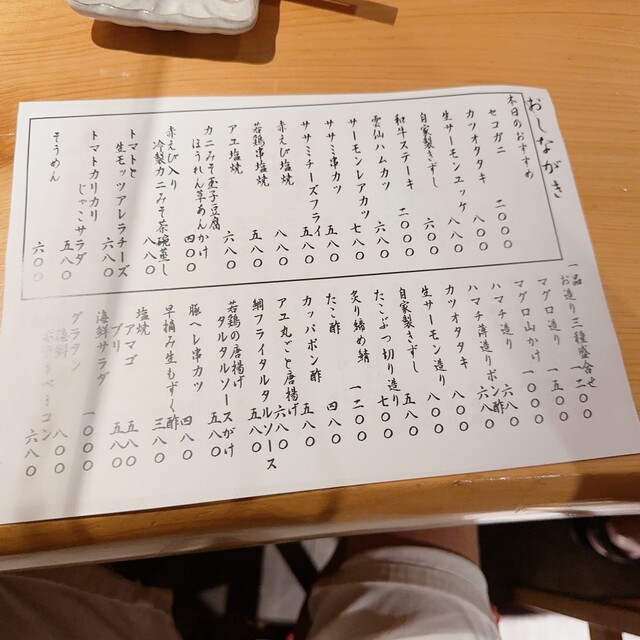 おしながき
本日のおすすめ
セコガニ 二〇〇〇
カツオタタキ 八〇〇
生サーモンユッケ 八八〇
自家製きずし 六〇〇
和牛ステーキ 二〇〇〇
雲仙ハムカツ 六八〇
サーモンレアカツ 七八〇
ササミ串カツ 五八〇
ササミチーズフライ 五八〇
赤えび塩焼 八八〇
若鶏串塩焼 五八〇
アユ塩焼 六八〇
カニみそ玉子豆腐
ほうれん草あんかけ 四〇〇
赤えび入り
冷製カニみそ茶碗蒸し 八八〇
トマトと
生モッツアレラチーズ 六八〇
トマトカリカリ
じゃこサラダ 五八〇
そうめん 六〇〇
一品
お造り三種盛合せ 一二〇〇
マグロ造り 一五〇〇
マグロ山かけ 一〇〇〇
ハマチ造り 六八〇
ハマチ薄造りポン酢 六八〇
カツオタタキ 八〇〇
生サーモン造り 八〇〇
自家製きずし 五八〇
たこぶつ切り造り 七〇〇
炙り締め鯖 一二〇〇
たこ酢 四八〇
カッパポン酢 五八〇
アユ丸ごと唐揚げ 六八〇
鯛フライタルタルソース 五八〇
若鶏の唐揚げ
タルタルソースがけ 五八〇
豚ヘレ串カツ 四八〇
早摘み生もずく酢 三八〇
塩焼
アマゴ 五〇〇
ブリ 五八〇
海鮮サラダ 一〇〇〇
グラタン
海鮮 八〇〇
六八〇